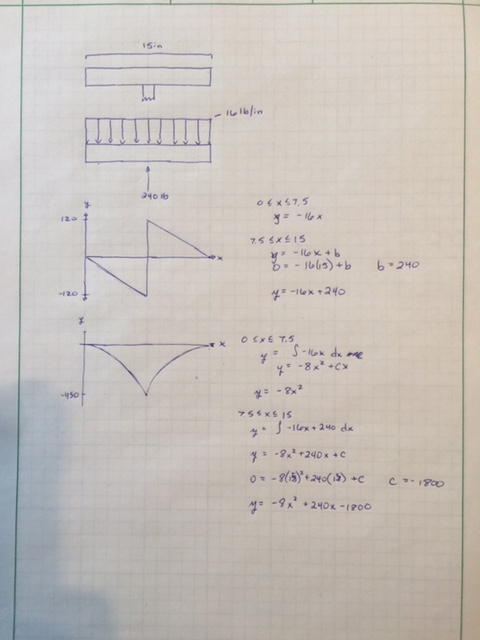 15in
16 lb/in
240 lb
y
120
x
-120
0 ≤ x ≤ 7.5
y = -16x
7.5 ≤ x ≤ 15
y = -16x + b
0 = -16(15) + b b = 240
y = -16x + 240
y
x
-450
0 ≤ x ≤ 7.5
y = ∫ -16x dx
y = -8x² + cx
y = -8x²
7.5 ≤ x ≤ 15
y = ∫ -16x + 240 dx
y = -8x² + 240x + c
0 = -8(15)² + 240(15) + c c = -1800
y = -8x² + 240x - 1800